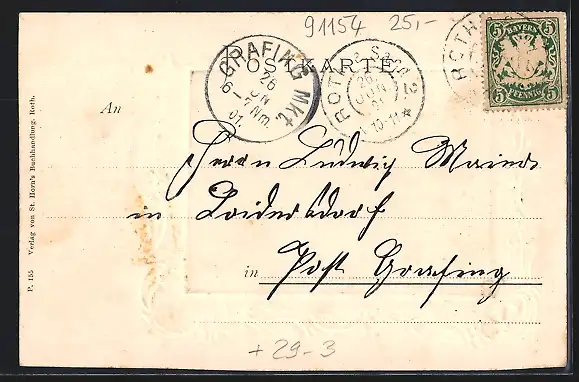 91154 25,-
POSTKARTE
GRAFING Mkt.
26
JUN
6-7 Nm.
01.
ROTH a. Sand 2
26
JUN
01
10-11
ROTH
BAYERN
5 5
PFENNIG
An
Herrn Ludwig Maier
in Loidersdorf
in Post Grafing
P. 155 Verlag von St. Horn's Buchhandlung, Roth.
+ 29-3